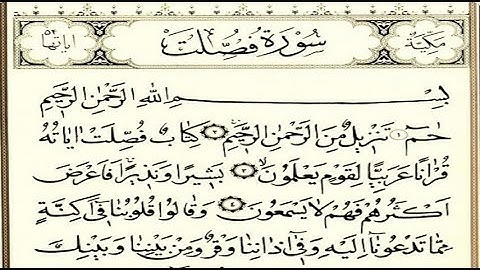 مكية سورة فصلت اياتها
بسم الله الرحمن الرحيم
حم ١ تنزيل من الرحمن الرحيم ٢ كتاب فصلت اياته
قرانا عربيا لقوم يعلمون ٣ بشيرا ونذيرا فاعرض
اكثرهم فهم لا يسمعون ٤ وقالوا قلوبنا في اكنة
مما تدعونا اليه وفي اذاننا وقر ومن بيننا وبينك